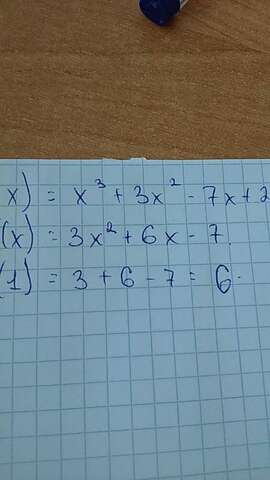 x) = x³ + 3x² - 7x + 2
(x) = 3x² + 6x - 7.
(1) = 3 + 6 - 7 = 6.